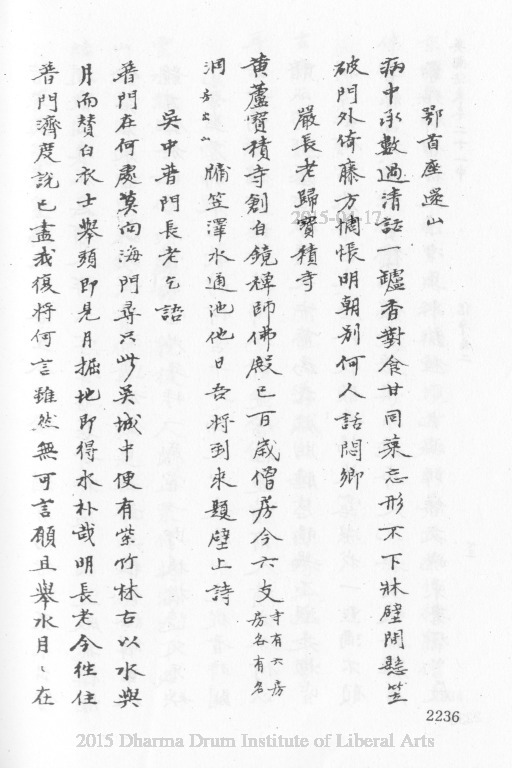 鄂首座還山
病中承數過清話一罏香對食甘同菜忘形不下牀壁間懸笠
破門外倚藤方惆悵明朝別何人話悶鄉
嚴長老歸寶積寺
黄蘆寶積寺創自鏡禪師佛殿已百歲僧房今六支寺有六房房各有名
洞房出山牖笠澤水通池他日吾將到來題壁上詩
吳中普門長老乞語
普門在何處莫向海門尋只此吳城中便有紫竹林古以水與
月而賛白衣士舉頭即見月掘地即得水朴哉明長老今徃住
普門濟度說已盡我復將何言雖然無可言願且舉水月〻在
2236
2015-04-17
2015 Dharma Drum Institute of Liberal Arts